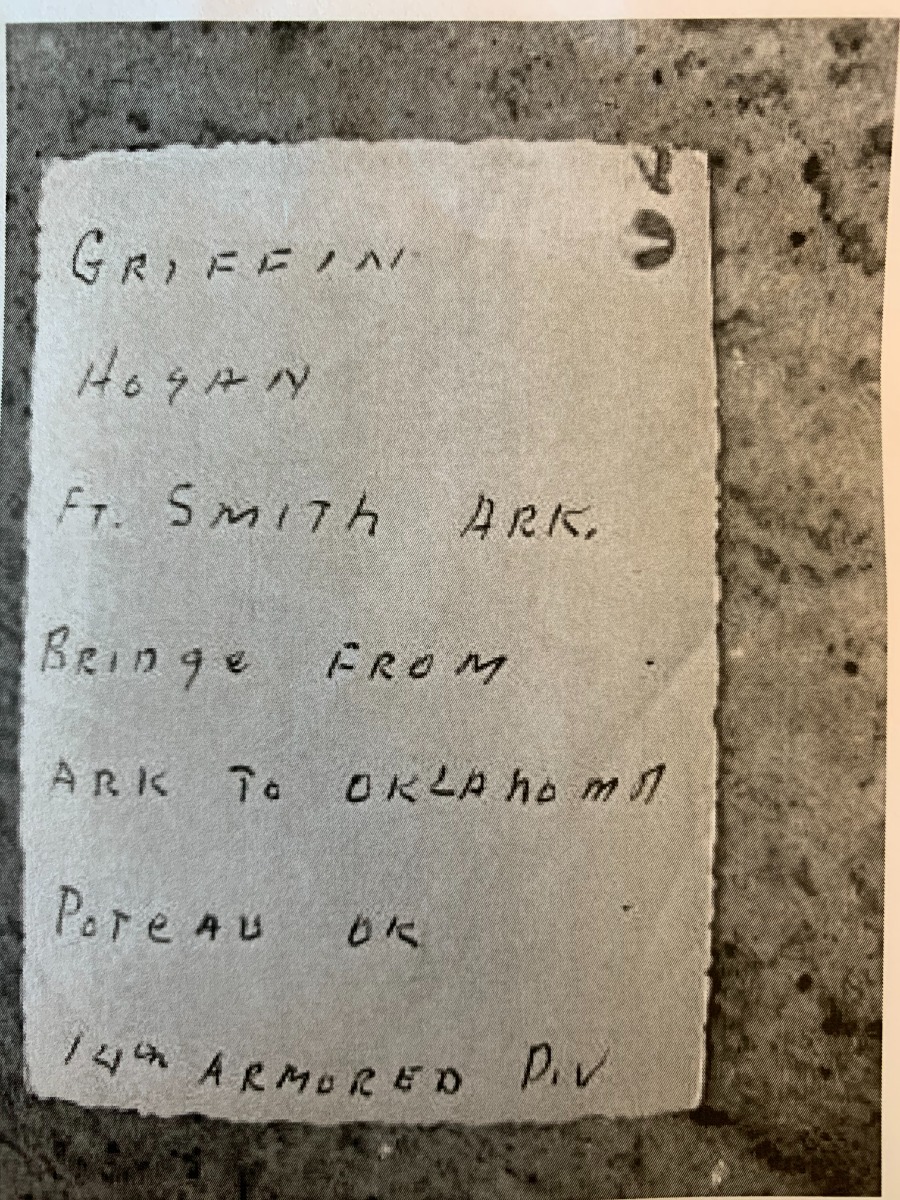 GRIFFIN
HOGAN
FT. SMITH ARK.
BRIDge FROM
ARK To OKLAhomA
PoTeAU OK
14th ARMORED DIV